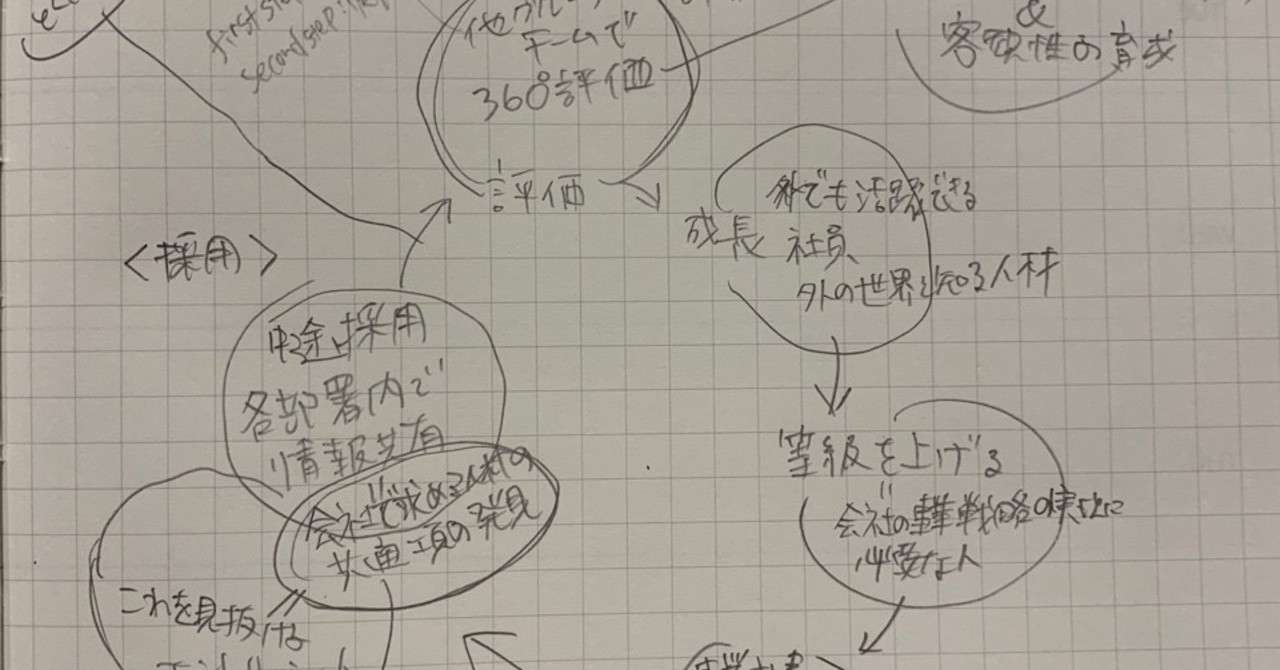 first step
second step
他グル
チームで
360°評価
&
客観性の育成
評価
成長
外でも活躍できる
社員、
外の世界を知る人材
<採用>
中途採用
各部署内で
情報共有
会社で求める人材の
共通項の発見
これを見抜ける
等級を上げる
会社の事業戦略の実現に
必要な人